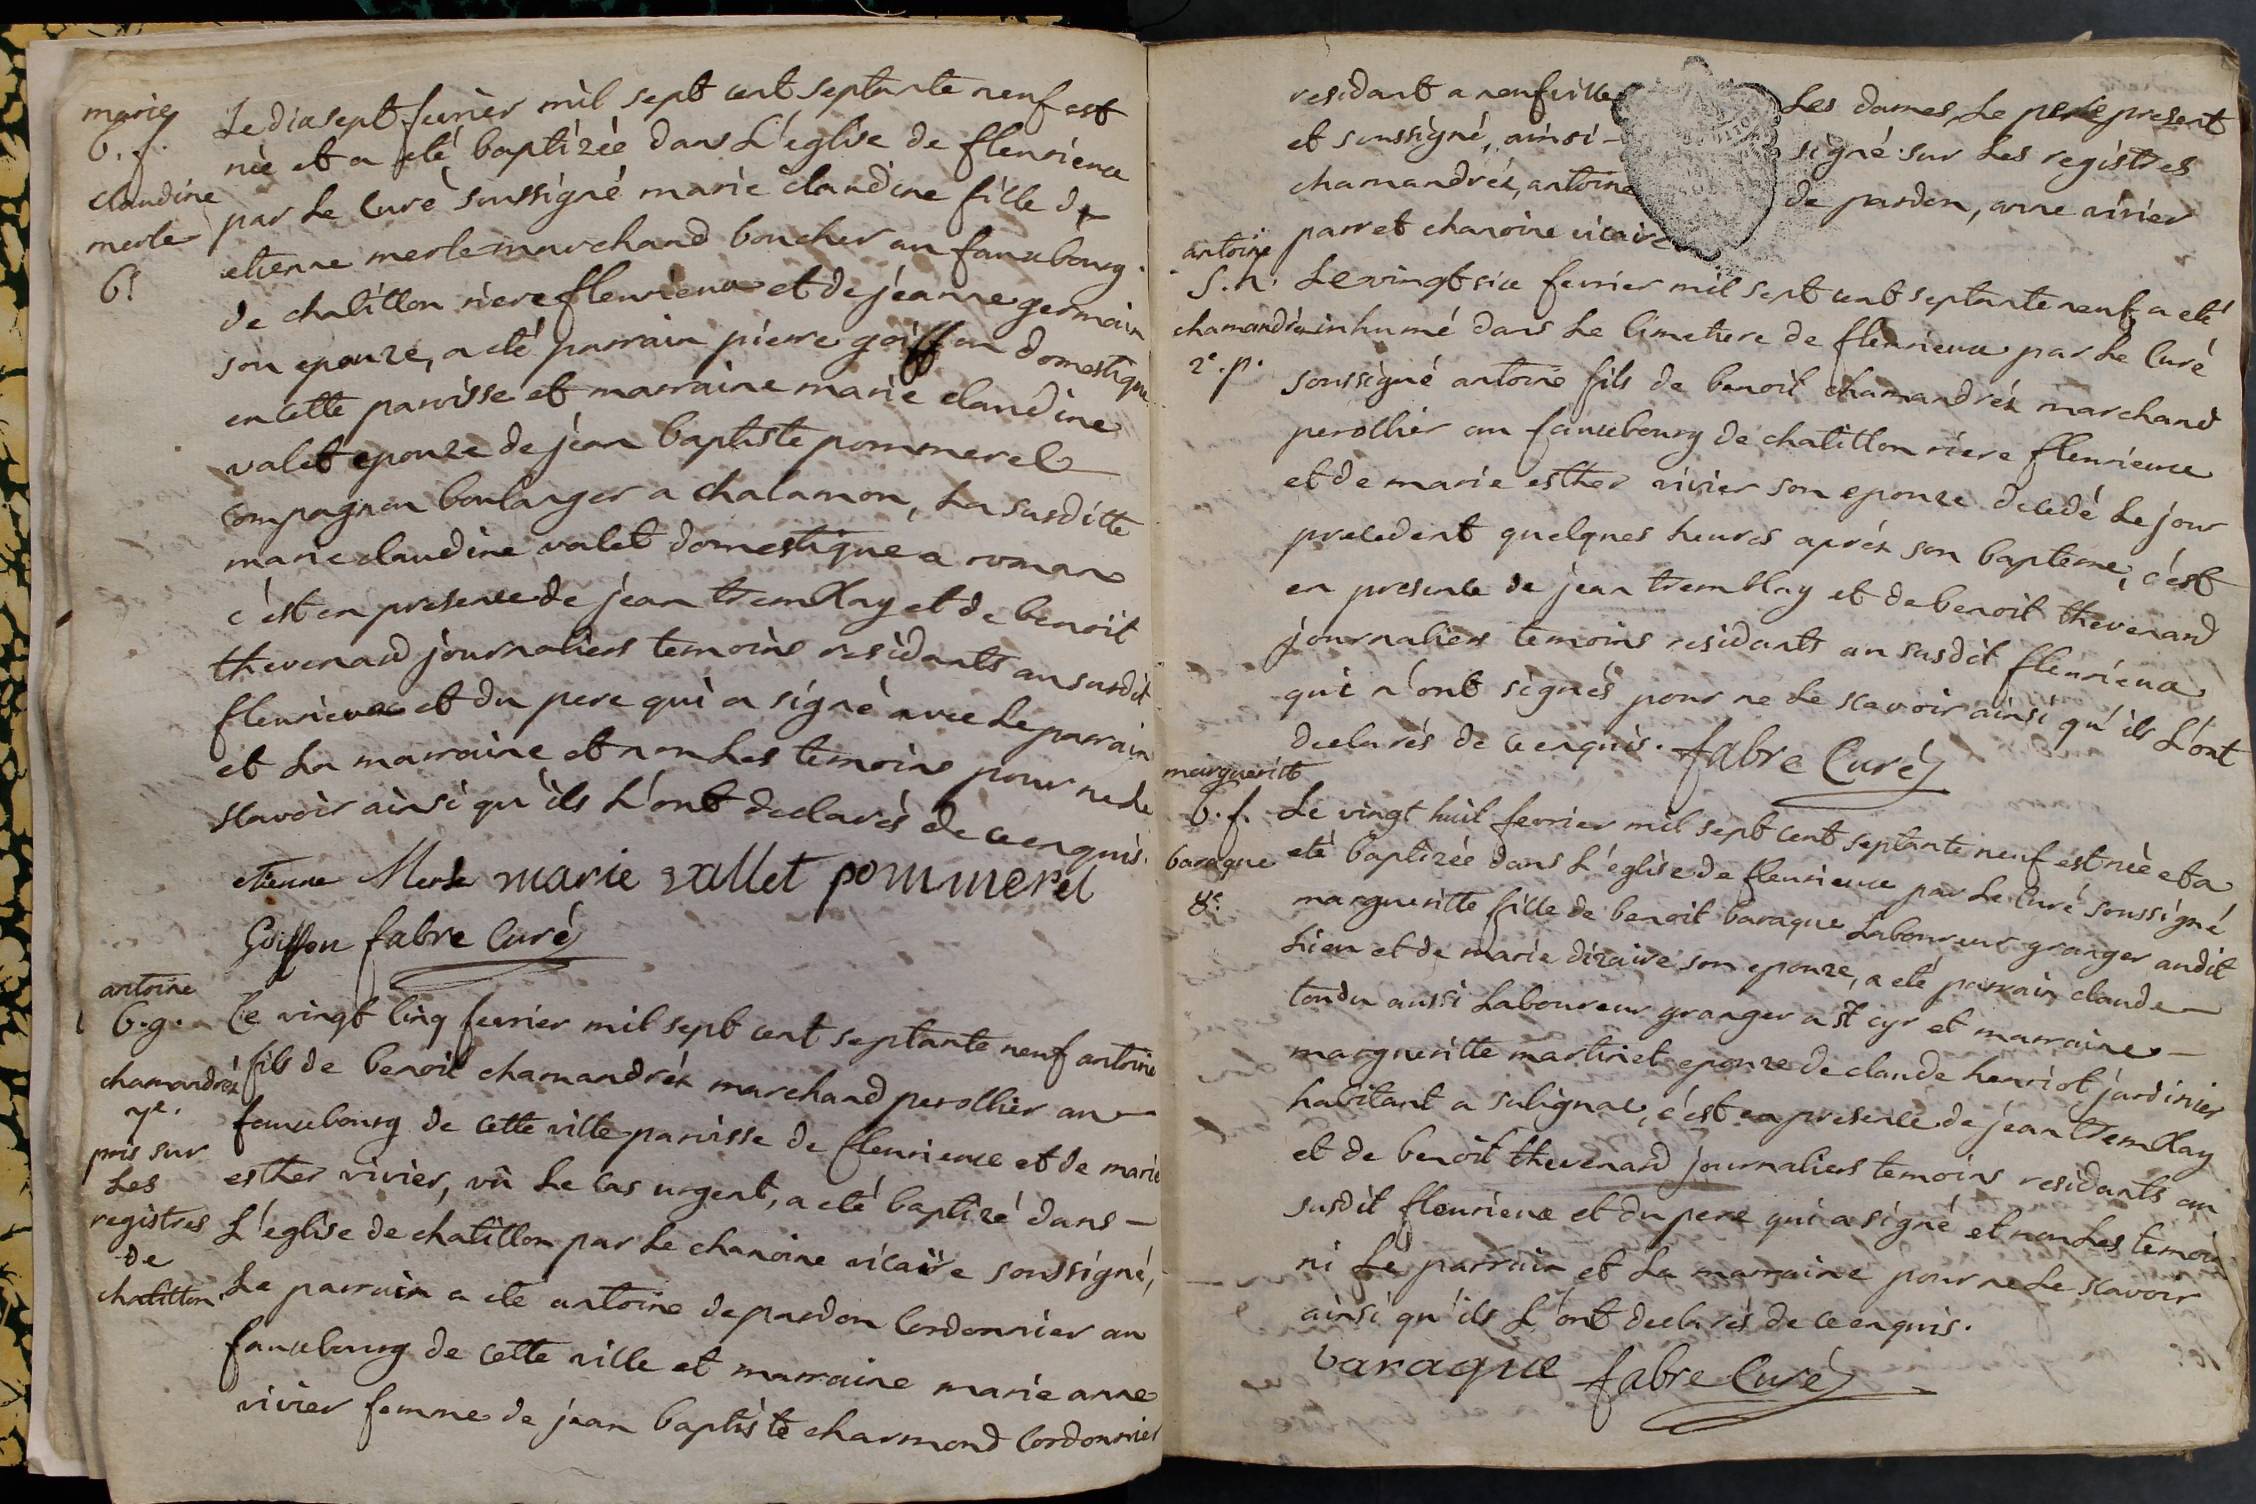 marie
b. f.
claudine
merle
6e
Le dix sept fevrier mil sept cent septante neuf est
née et a eté baptizée dans L'eglise de fleurieux
par Le Curé soussigné marie claudine fille de
etienne merle marchand boucher au fauxbourg
de chatillon riere fleurieux et de jéanne germain
son epouze, a eté parrain pierre goiffon domestique
en cette paroisse et marraine marie claudine
valet epouze de jéan baptiste pommerel
compagnon boulanger a chalamon, La susditte
marie claudine valet domestique a roman
c'est en presence de jéan tremblay et de benoit
thevenard journaliers temoins residants au susdit
fleurieux et du pere qui a signé avec Le parrain
et La marraine et non Les temoins pour ne Le
scavoir ainsi qu'ils L'ont declarés de ce enquis.
etienne Merle marie vallet pommerel
Goiffon fabre Curé
antoine
b. g.
chamandréx
7e.
pris sur
Les
registres
de
chatillon
Le vingt cinq fevrier mil sept cent septante neuf antoine
fils de benoit chamandréx marchand perollier au
fauxbourg de cette ville paroisse de fleurieux et de marie
esther vivier, vû Le cas urgent, a eté baptizé dans
L'eglise de chatillon par Le chanoine vicaire soussigné,
Le parrain a eté antoine depardon Cordonnier au
fauxbourg de cette ville et marraine marie anne
vivier femme de jean baptiste charmond Cordonnier
residant a neufville Les dames, Le pere present
et soussigné, ainsi signé sur Les registres
chamandréx, antoine de pardon, anne vivier
parret chanoine vicaire
antoine
S. n.
chamandréx
2e. p.
Le vingt six fevrier mil sept cent septante neuf a eté
inhumé dans Le Cimetiere de fleurieux par Le Curé
soussigné antoine fils de benoit chamandréx marchand
perollier au fauxbourg de chatillon riere fleurieux
et de marie esther vivier son epouze decedé Le jour
precedent quelques heures apréx son bapteme, c'est
en presence de jean tremblay et de benoit thevenard
journaliers temoins residants au susdit fleurieux
qui n'ont signés pour ne Le scavoir ainsi qu'ils L'ont
declarés de ce enquis. fabre Curé
margueritte
b. f.
baraque
8e.
Le vingt huit fevrier mil sept cent septante neuf est née et a
eté baptizée dans L'eglise de fleurieux par Le Curé soussigné
margueritte fille de benoit baraque Laboureur granger audit
Lieu et de marie dizaire son epouze, a eté parrain claude
tondu aussi Laboureur granger a St cyr et marraine
margueritte martinet epouze de claude henriot jardinier
habitant a sulignac, c'est en presence de jéan tremblay
et de benoit thevenard journaliers temoins residants au
susdit fleurieux et du pere qui a signé et non Les temoins
ni Le parrain et La marraine pour ne Le scavoir
ainsi qu'ils L'ont declarés de ce enquis.
baraque fabre Curé